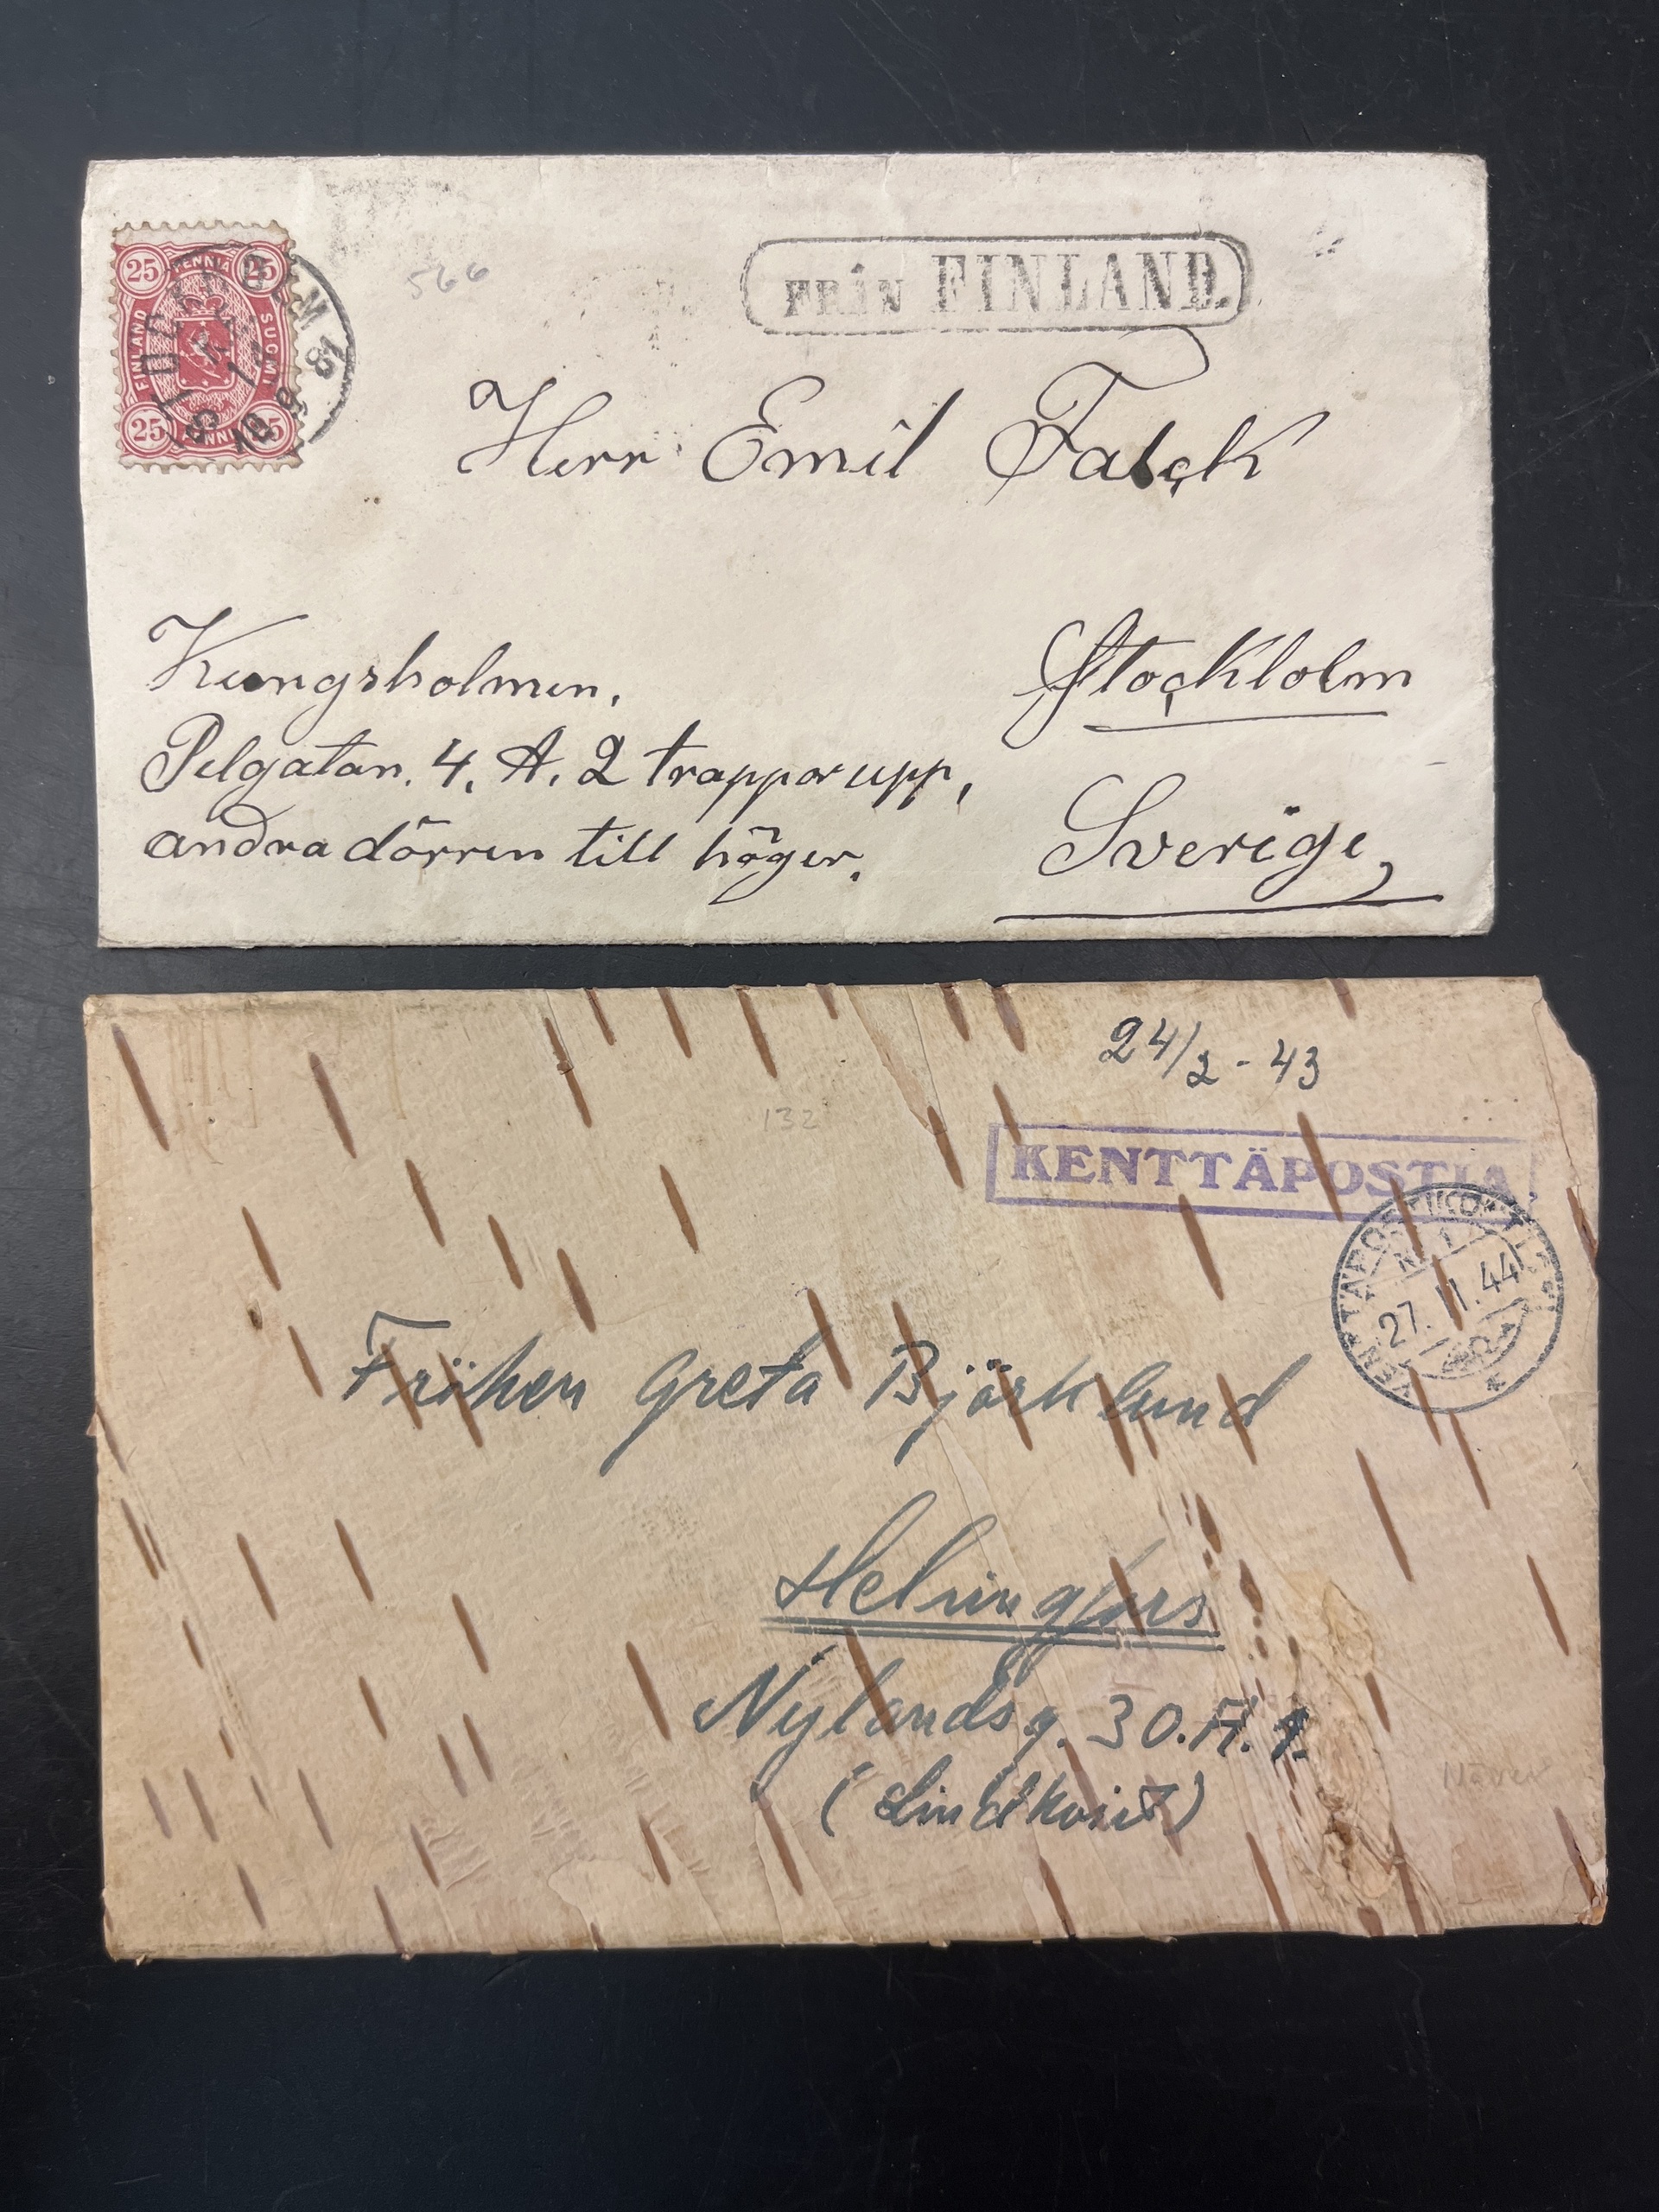 25 PENNIÄ 25
FINLAND SUOMI
25 PENNIÄ 25
STOCKHOLM
566
FRÅN FINLAND.
Herr Emil Falck
Kungsholmen,
Pilgatan. 4, A. 2 trappor upp,
andra dörren till höger.
Stockholm
Sverige,
24/2 - 43
132
KENTTÄPOSTIA
KENTTÄPOSTIKONTTORI
27. II. 44
Fröken Greta Björklund
Helsingfors
Nylandsg. 30. A. 1.
(Lindkvist)
Näver